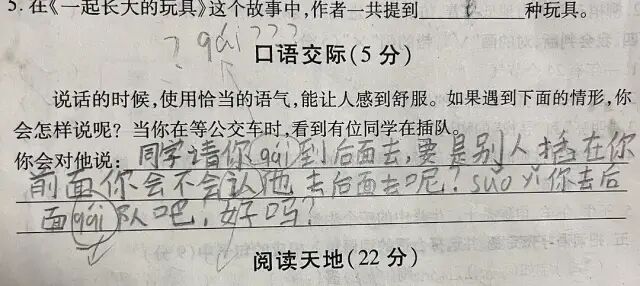 5. 在《一起长大的玩具》这个故事中,作者一共提到 8 种玩具。
? gái ???
口语交际(5 分)
说话的时候,使用恰当的语气,能让人感到舒服。如果遇到下面的情形,你
会怎样说呢?当你在等公交车时,看到有位同学在插队。
你会对他说:同学请你gái到后面去,要是别人插在你
前面你会不会认他去后面去呢?suǒ yǐ你去后
面gái队吧,好吗?
阅读天地(22 分)